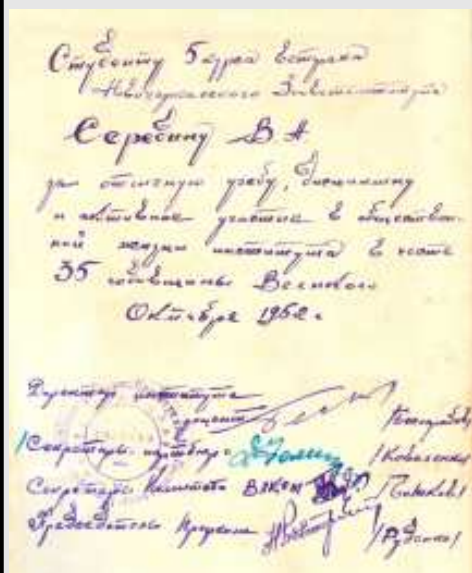 Студенту 5 курса Ветфака
Новочеркасского Зооветинститута
Серебину В А
за отличную учебу, дисциплину
и активное участие в обществен-
ной жизни института в честь
35 годовщины Великого
Октября 1952 г
Директор института
доцент
/Секретарь партбюро /Коваленко
Секретарь Комитета ВЛКСМ
Председатель Профкома /Руденко/